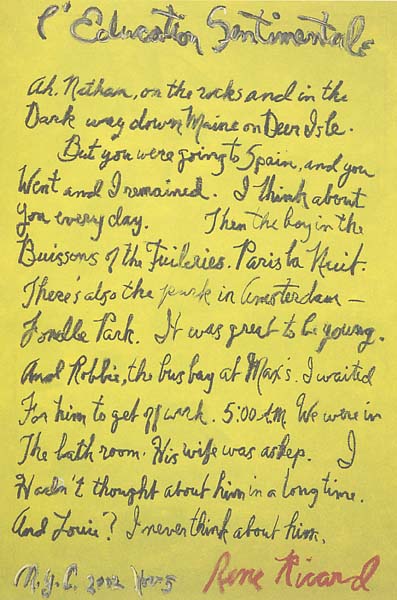 L'Education Sentimentale
Ah, Nathan, on the rocks and in the
Dark way down Maine on Deer Isle.
But you were going to Spain, and you
Went and I remained. I think about
you every day. Then the boy in the
Buissons of the Tuileries. Paris la Nuit.
There's also the park in Amsterdam –
Fondle Park. It was great to be young.
And Robbie, the bus boy at Max's. I waited
For him to get off work. 5:00 AM We were in
The bath room. His wife was asleep. I
Hadn't thought about him in a long time.
And Louie? I never think about him.
N.Y.C. 2002 Rene Ricard